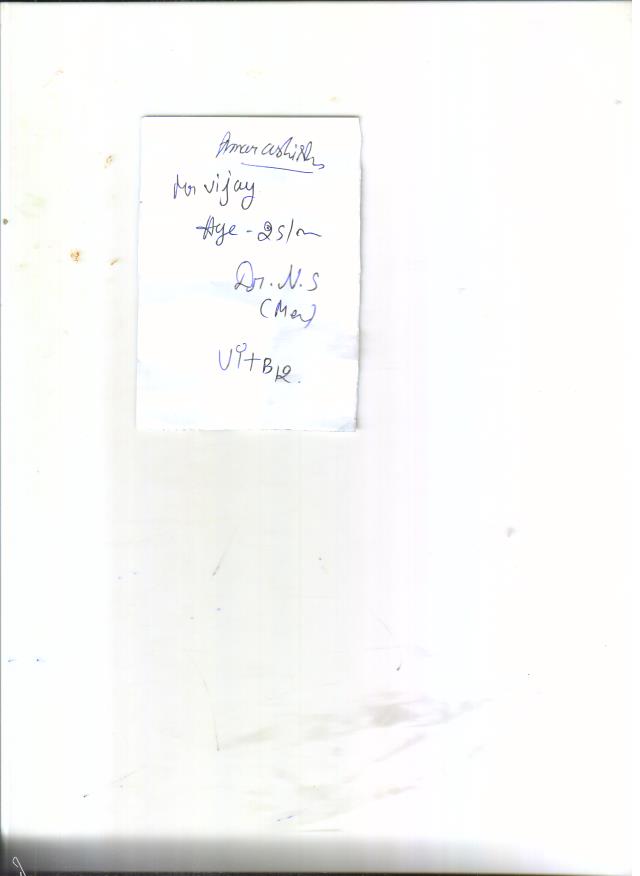 Amar ashish
Mr Vijay
Age - 25/m
Dr. N. S
Vit B12.